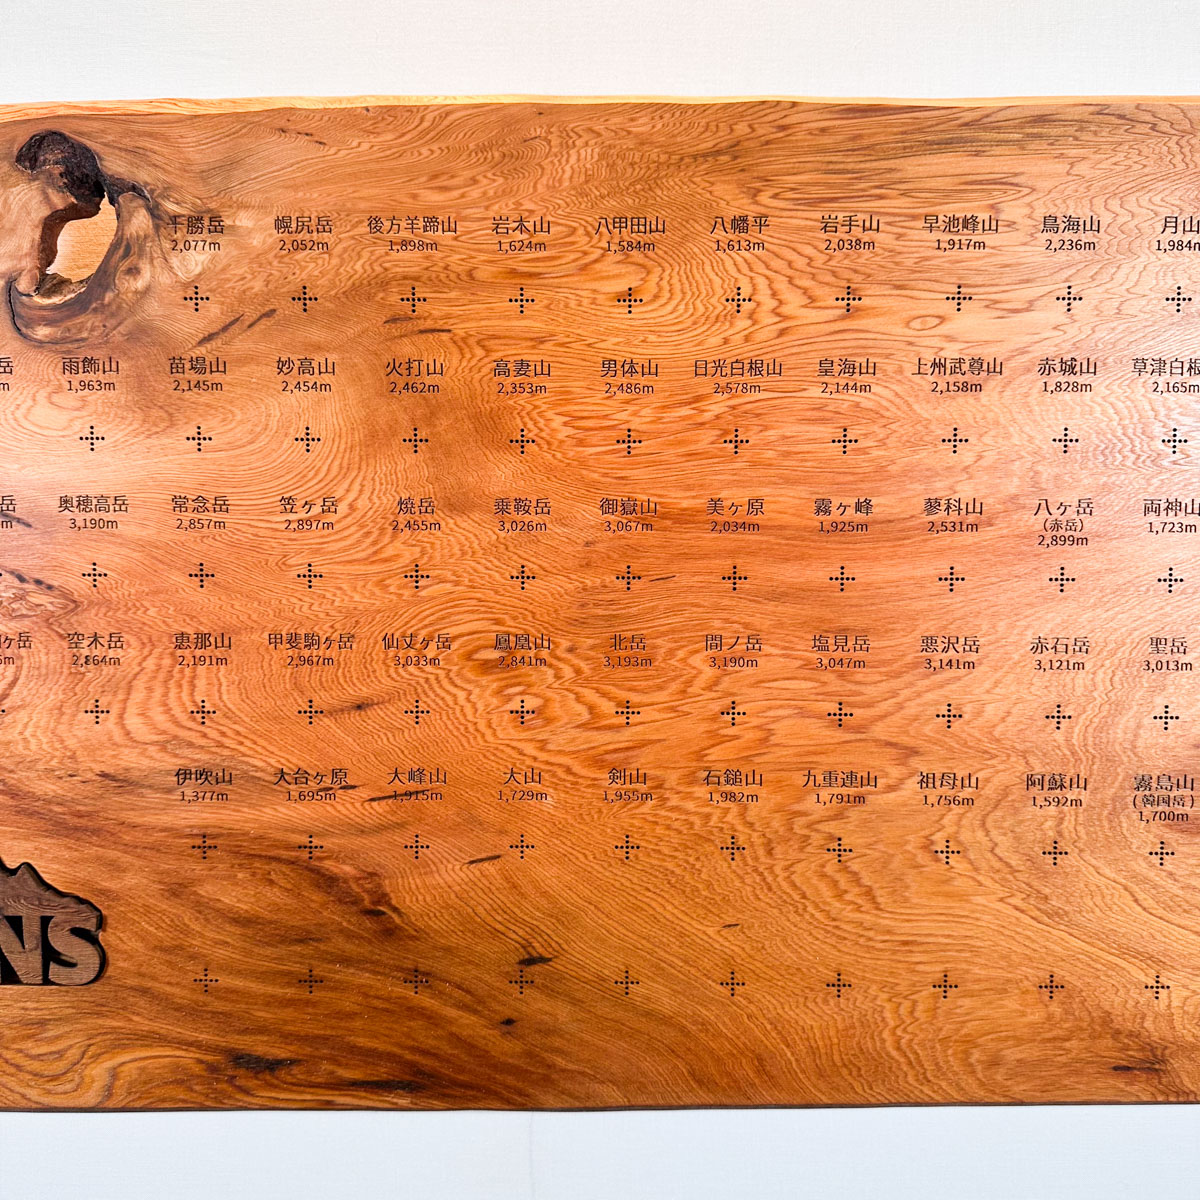 十勝岳 幌尻岳 後方羊蹄山 岩木山 八甲田山 八幡平 岩手山 早池峰山 鳥海山 月山
2,077m 2,052m 1,898m 1,624m 1,584m 1,613m 2,038m 1,917m 2,236m 1,984m
岳 雨飾山 苗場山 妙高山 火打山 高妻山 男体山 日光白根山 皇海山 上州武尊山 赤城山 草津白根
m 1,963m 2,145m 2,454m 2,462m 2,353m 2,486m 2,578m 2,144m 2,158m 1,828m 2,165m
岳 奥穂高岳 常念岳 笠ヶ岳 焼岳 乗鞍岳 御嶽山 美ヶ原 霧ヶ峰 蓼科山 八ヶ岳 両神山
(赤岳)
m 3,190m 2,857m 2,897m 2,455m 3,026m 3,067m 2,034m 1,925m 2,531m 2,899m 1,723m
ヶ岳 空木岳 恵那山 甲斐駒ヶ岳 仙丈ヶ岳 鳳凰山 北岳 間ノ岳 塩見岳 悪沢岳 赤石岳 聖岳
m 2,864m 2,191m 2,967m 3,033m 2,841m 3,193m 3,190m 3,047m 3,141m 3,121m 3,013m
伊吹山 大台ヶ原 大峰山 大山 剣山 石鎚山 九重連山 祖母山 阿蘇山 霧島山
(韓国岳)
1,377m 1,695m 1,915m 1,729m 1,955m 1,982m 1,791m 1,756m 1,592m 1,700m
NS